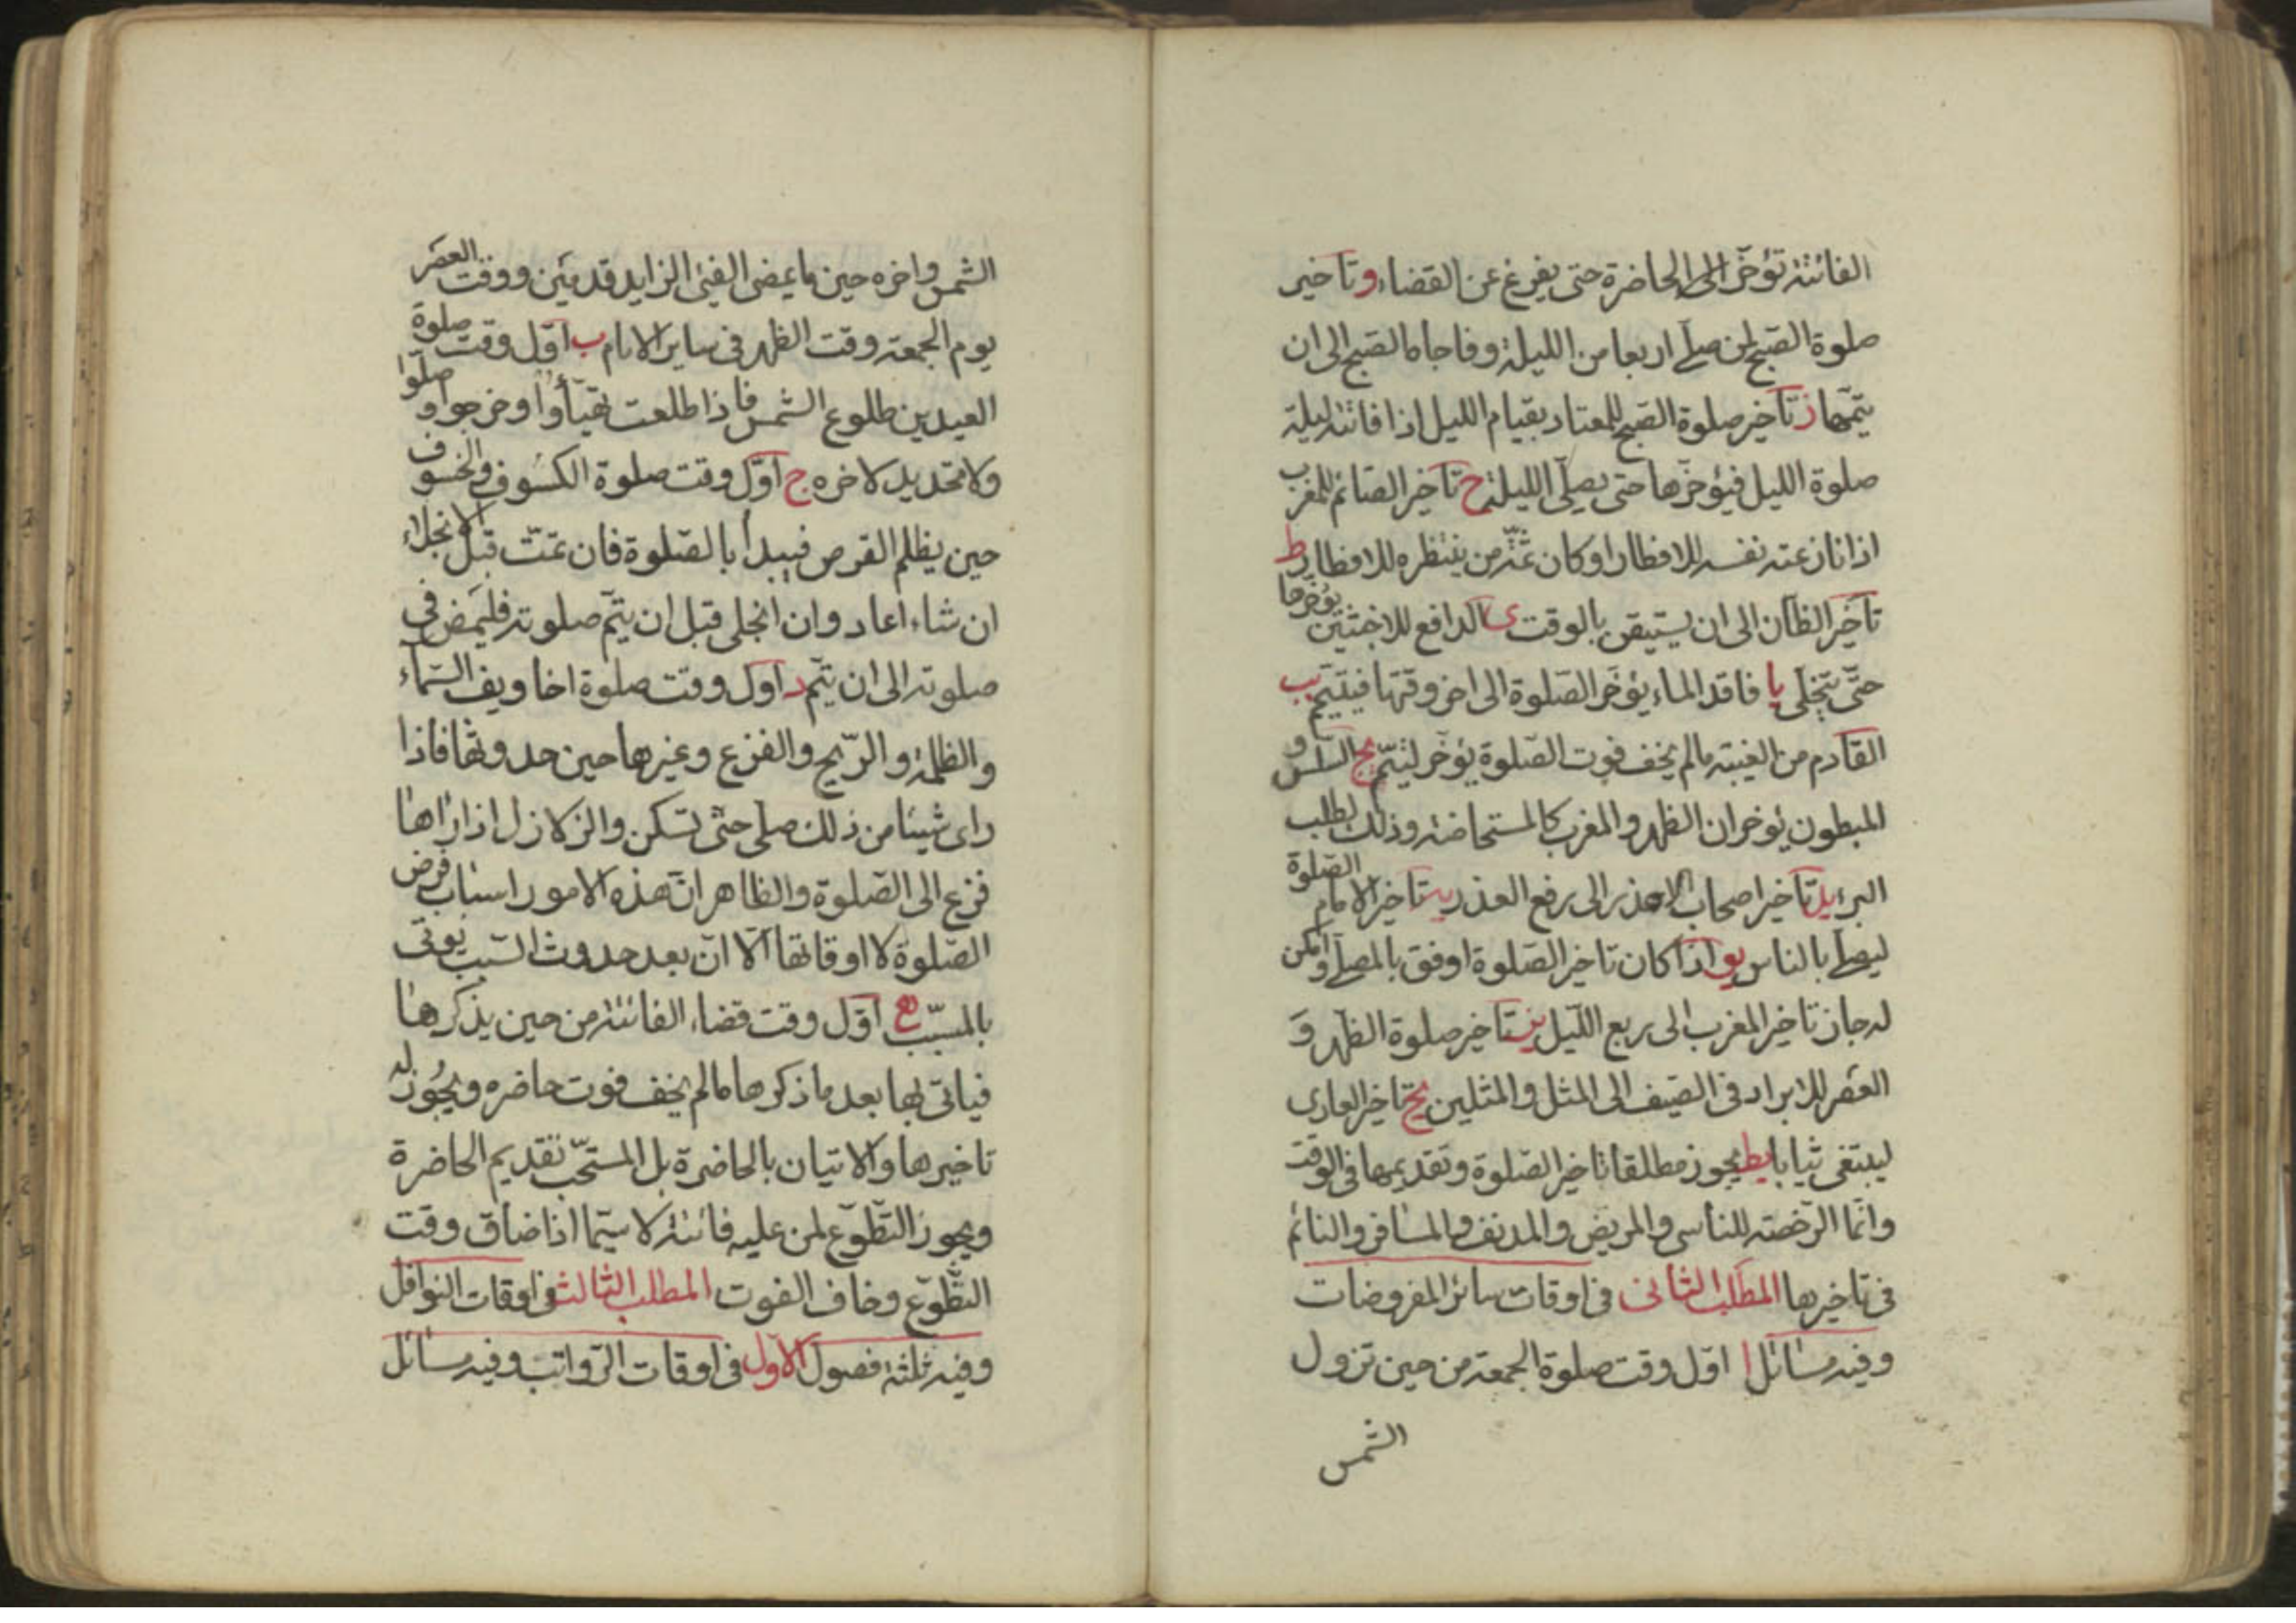 الفائتة تؤخر الى الحاضرة حتى يفرغ عن القضاء و تاخير
صلوة الصبح لمن صلى اربعا من الليلة وفاجاه الصبح الى ان
يتمها ز تاخير صلوة الصبح للمعتاد بقيام الليل اذا فاتته ليلة
صلوة الليل فيؤخرها حتى يصلى الليلة ح تاخير الصائم المغرب
اذا نازعته نفسه للافطار او كان ثمة من ينتظره للافطار ط
تاخير الظان الى ان يستيقن بالوقت ى الدافع للاخبثين يؤخرها
حتى يتخلى يا فاقد الماء يؤخر الصلوة الى اخر وقتها فيتيمم يب
القادم من الغيبة مالم يخف فوت الصلوة يؤخر ليتم يج السلس و
المبطون يؤخران الظهر والمغرب كالمستحاضة وذلك لطلب
البرء يد تاخير اصحاب الاعذار الى رفع العذر يه تاخير الامام الصلوة
ليصلى بالناس يو اذا كان تاخير الصلوة اوفق بالمصلى وامكن
له جاز تاخير المغرب الى ربع الليل يز تاخير صلوة الظهر و
العصر للابراد فى الصيف الى المثل والمثلين يح تاخير العارى
ليبتغى ثيابا يط يجوز مطلقا تاخير الصلوة وتقديمها فى الوقت
وانما الرخصة للناسى والمريض والمدنف والمسافر والنائم
فى تاخيرها المطلب الثانى فى اوقات سائر المفروضات
وفيه مسائل ا اول وقت صلوة الجمعة من حين تزول
الشمس
الشمس واخره حين ما يمضى الفئ الزايد قدمين ووقت العصر
يوم الجمعة وقت الظهر فى ساير الايام ب اول وقت صلوة
العيدين طلوع الشمس فاذا طلعت تهيأوا وخرجوا وصلوا
ولا تحديد لاخره ج اول وقت صلوة الكسوف والخسوف
حين يظلم القرص فيبدأ بالصلوة فان تمت قبل الانجلاء
ان شاء اعاد وان انجلى قبل ان يتم صلوته فليمض فى
صلوته الى ان يتم د اول وقت صلوة اخاويف السماء
والظلمة والريح والفزع وغيرها حين حدوثها فاذا
راى شيئا من ذلك صلى حتى تسكن والزلازل اذا راها
فزع الى الصلوة والظاهر ان هذه الامور اسباب فرض
الصلوة لا اوقاتها الا ان بعد حدوث السبب يوتى
بالمسبب ه اول وقت قضاء الفائتة من حين يذكرها
فياتى بها بعد ما ذكرها مالم يخف فوت حاضره ويجوز له
تاخيرها والاتيان بالحاضرة بل المستحب تقديم الحاضرة
ويجوز التطوع لمن عليه فائتة لا سيما اذا ضاق وقت
التطوع وخاف الفوت المطلب الثالث فى اوقات النوافل
وفيه ثلثة فصول الاول فى اوقات الرواتب وفيه مسائل